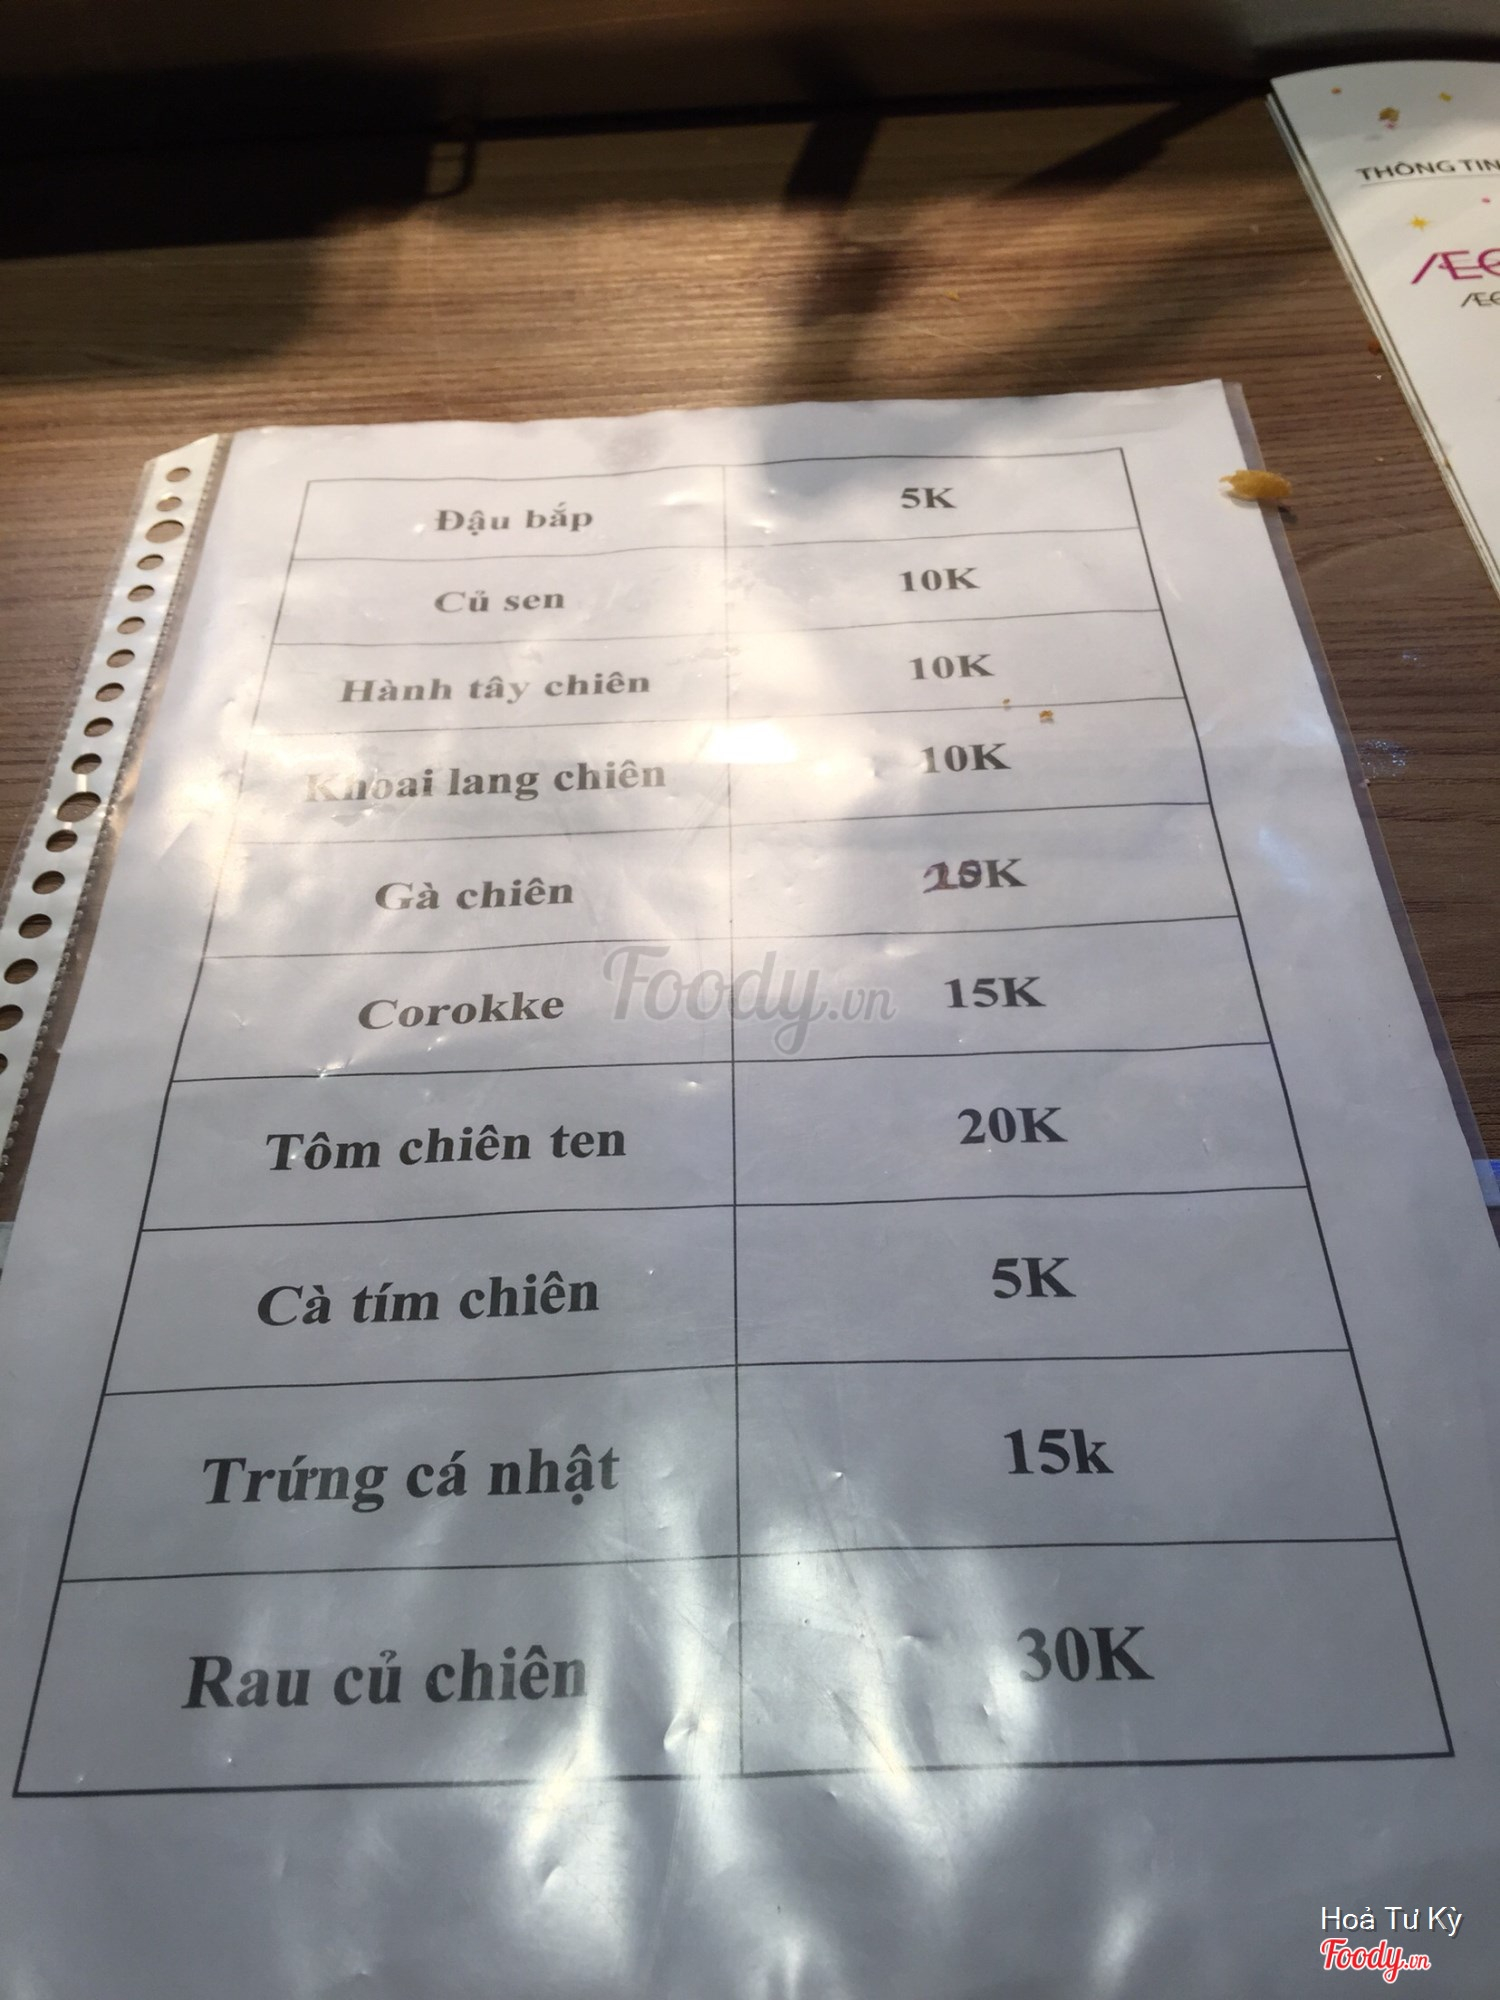 THÔNG TIN
Đậu bắp 5K
Củ sen 10K
Hành tây chiên 10K
Khoai lang chiên 10K
Gà chiên
Corokke 15K
Tôm chiên ten 20K
Cà tím chiên 5K
Trứng cá nhật 15k
Rau củ chiên 30K
Foody.vn
Hoả Tư Kỳ
Foody.vn